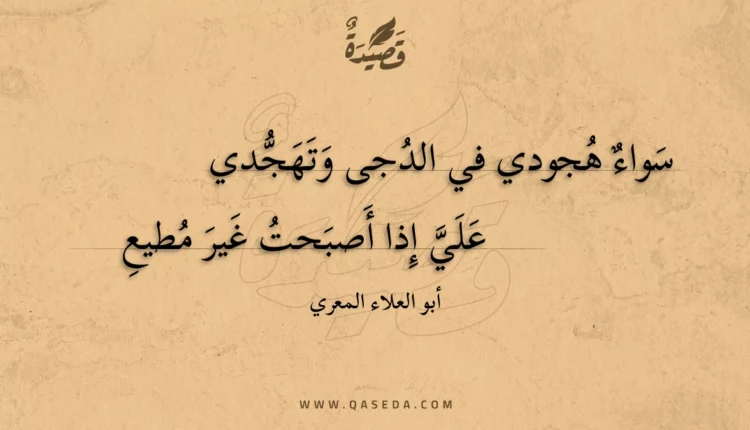 قَصِيْدَةٌ
سَواءٌ هُجودي في الدُجى وَتَهَجُّدي
عَلَيَّ إِذا أَصبَحتُ غَيرَ مُطيعِ
أبو العلاء المعري
WWW.QASEDA.COM